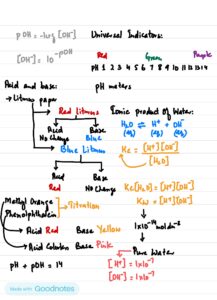 pOH = -log [OH⁻]
[OH⁻] = 10^-pOH
Universal Indicators:
Red Green Purple
pH 1 2 3 4 5 6 7 8 9 10 11 12 13 14
pH meters
Acid and base:
→ Litmus paper
Red Litmus
Acid Base
No Change Blue
Blue Litmus
Acid Base
Red No Change
Methyl Orange
Phenolphthalein
Titration
Acid Red Base Yellow
Acid Colorless Base Pink
pH + pOH = 14
Ionic product of Water:
H₂O ⇌ H⁺ + OH⁻
(aq) (aq)
Kc = [H⁺][OH⁻]
[H₂O]
Kc[H₂O] = [H⁺][OH⁻]
Kw = [H⁺][OH⁻]
1×10⁻¹⁴
Pure Water
[H⁺] = 1×10⁻⁷
[OH⁻] = 1×10⁻⁷
Made with Goodnotes